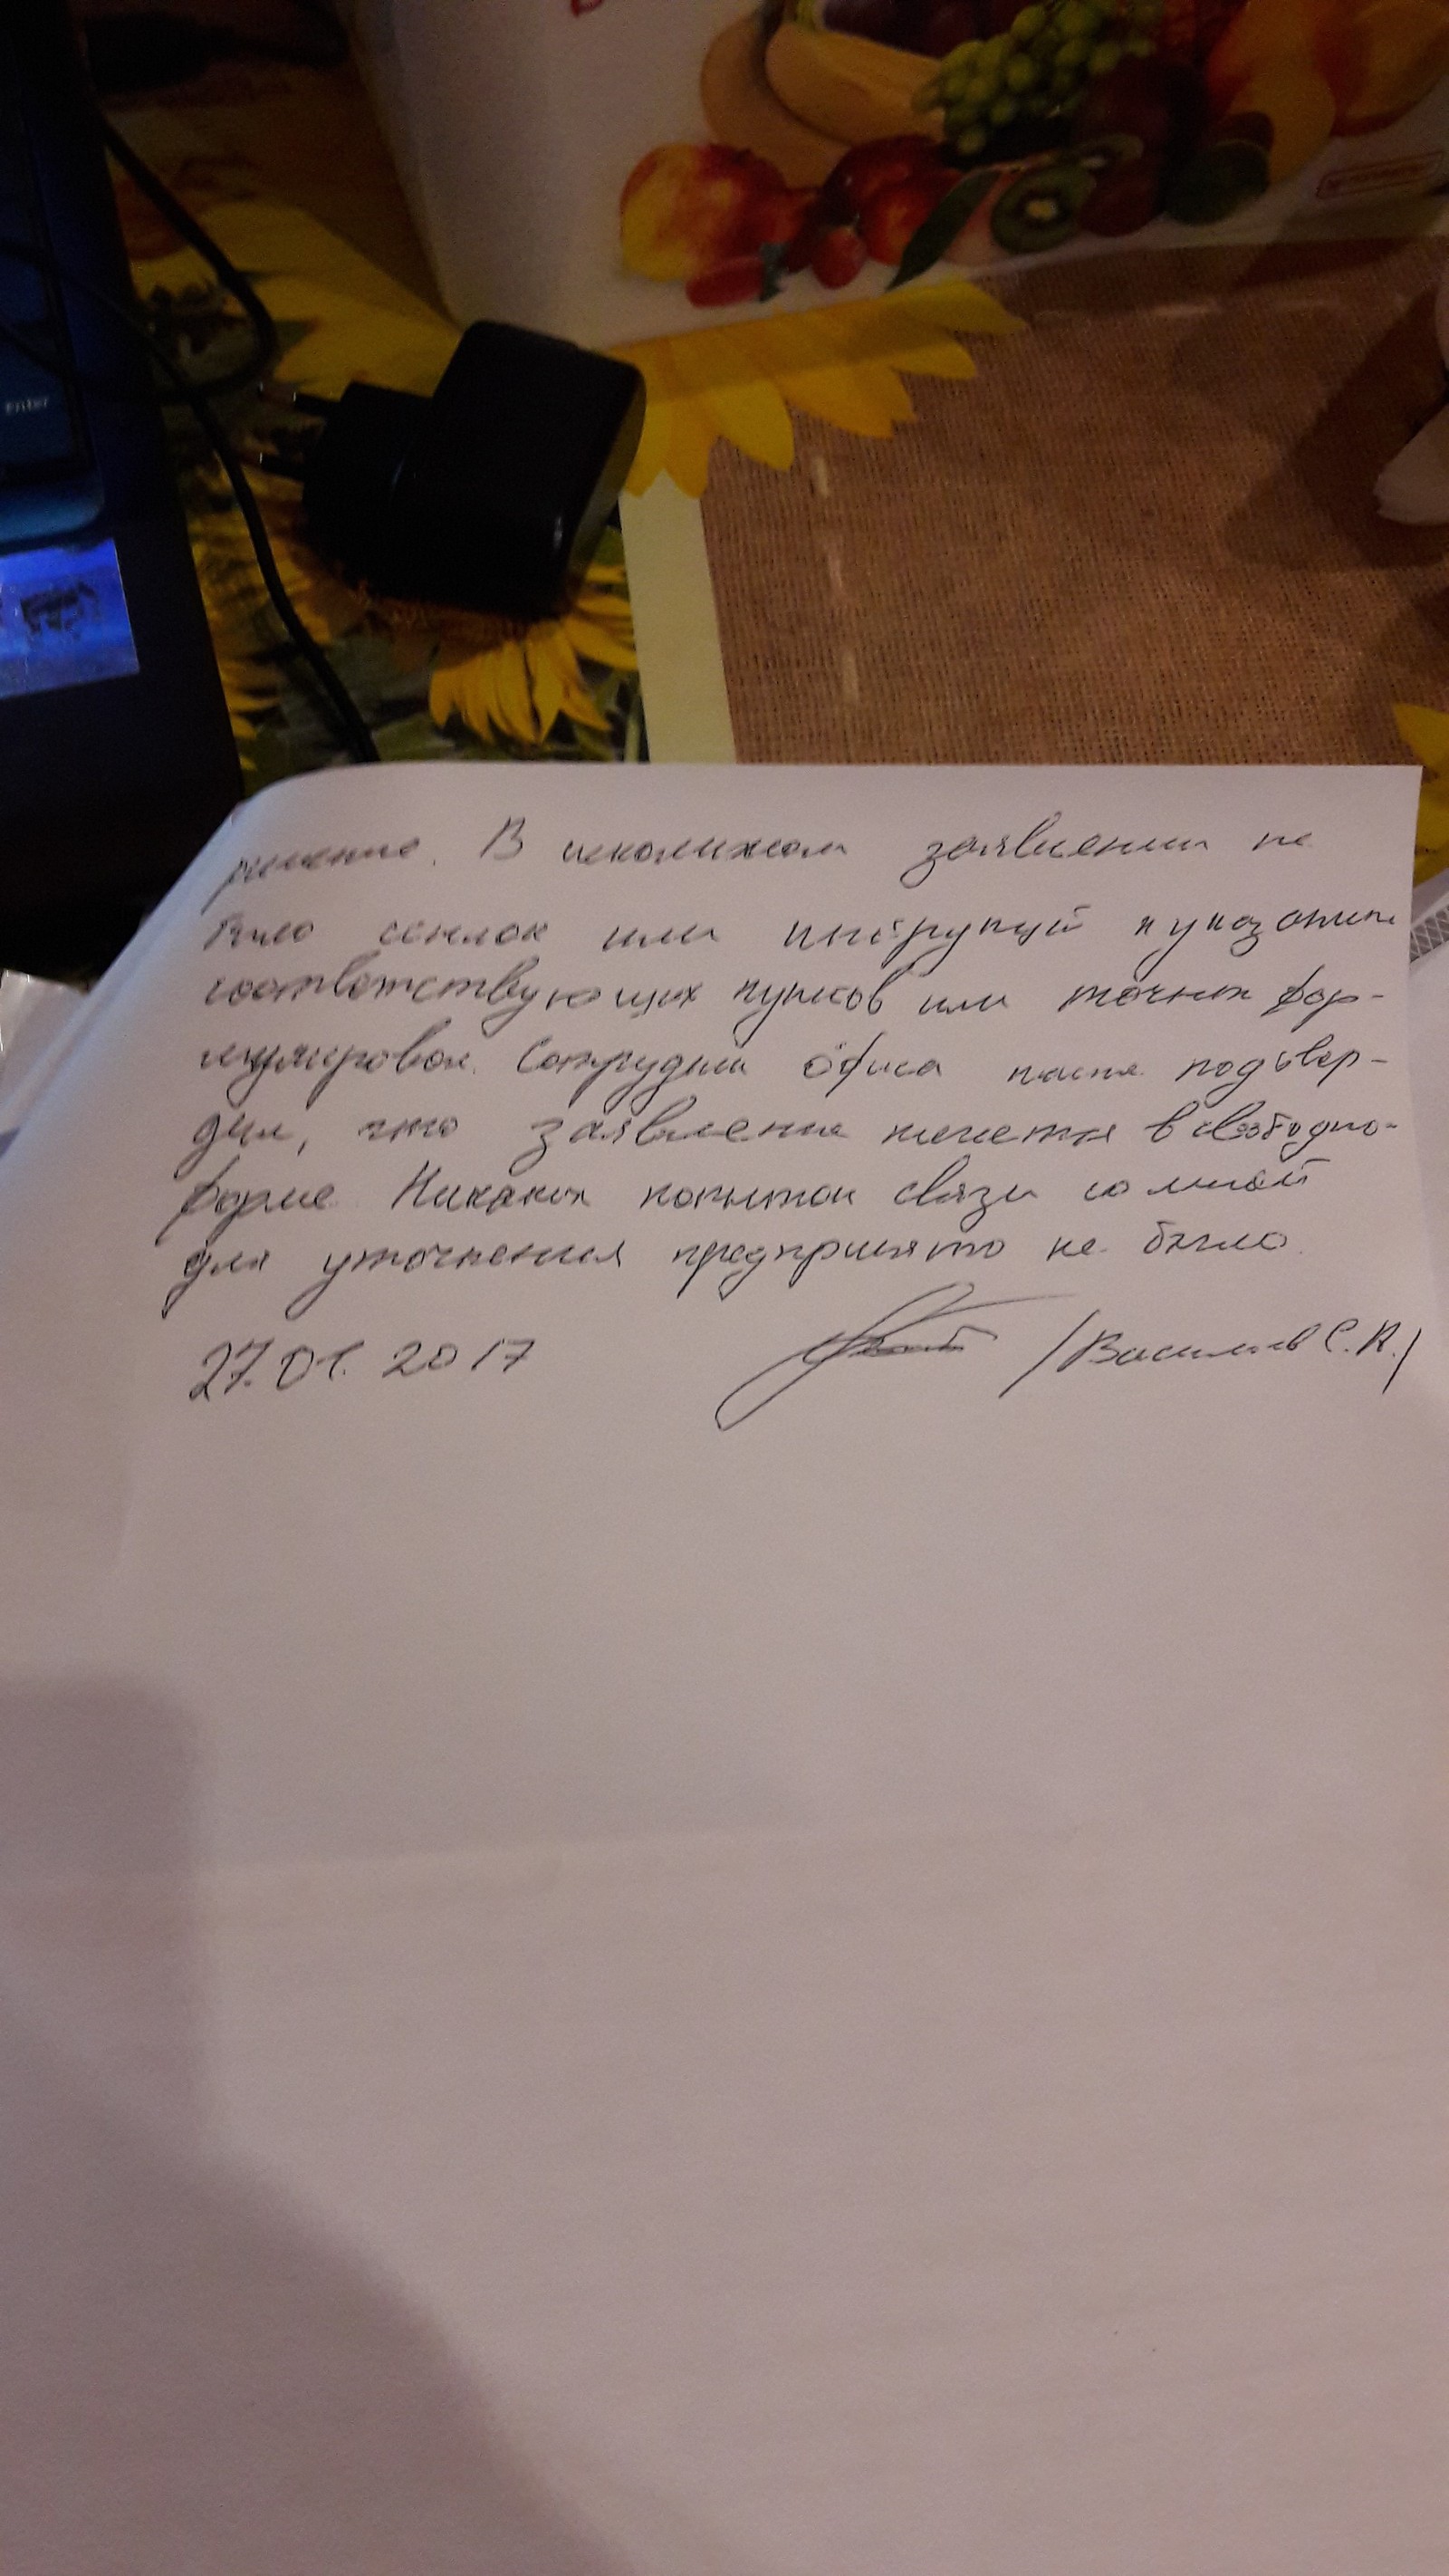 Enter
решение. В заявлении не
было ссылок или инструкций к указанию
соответствующих пунктов или точных фор-
мулировок. Сотрудник офиса подтвер-
дил, что заявление пишется в свободно-
форме. Никаких попыток связи со мной
для уточнения предпринято не было.
27.01.2017 /Васильев С.А./